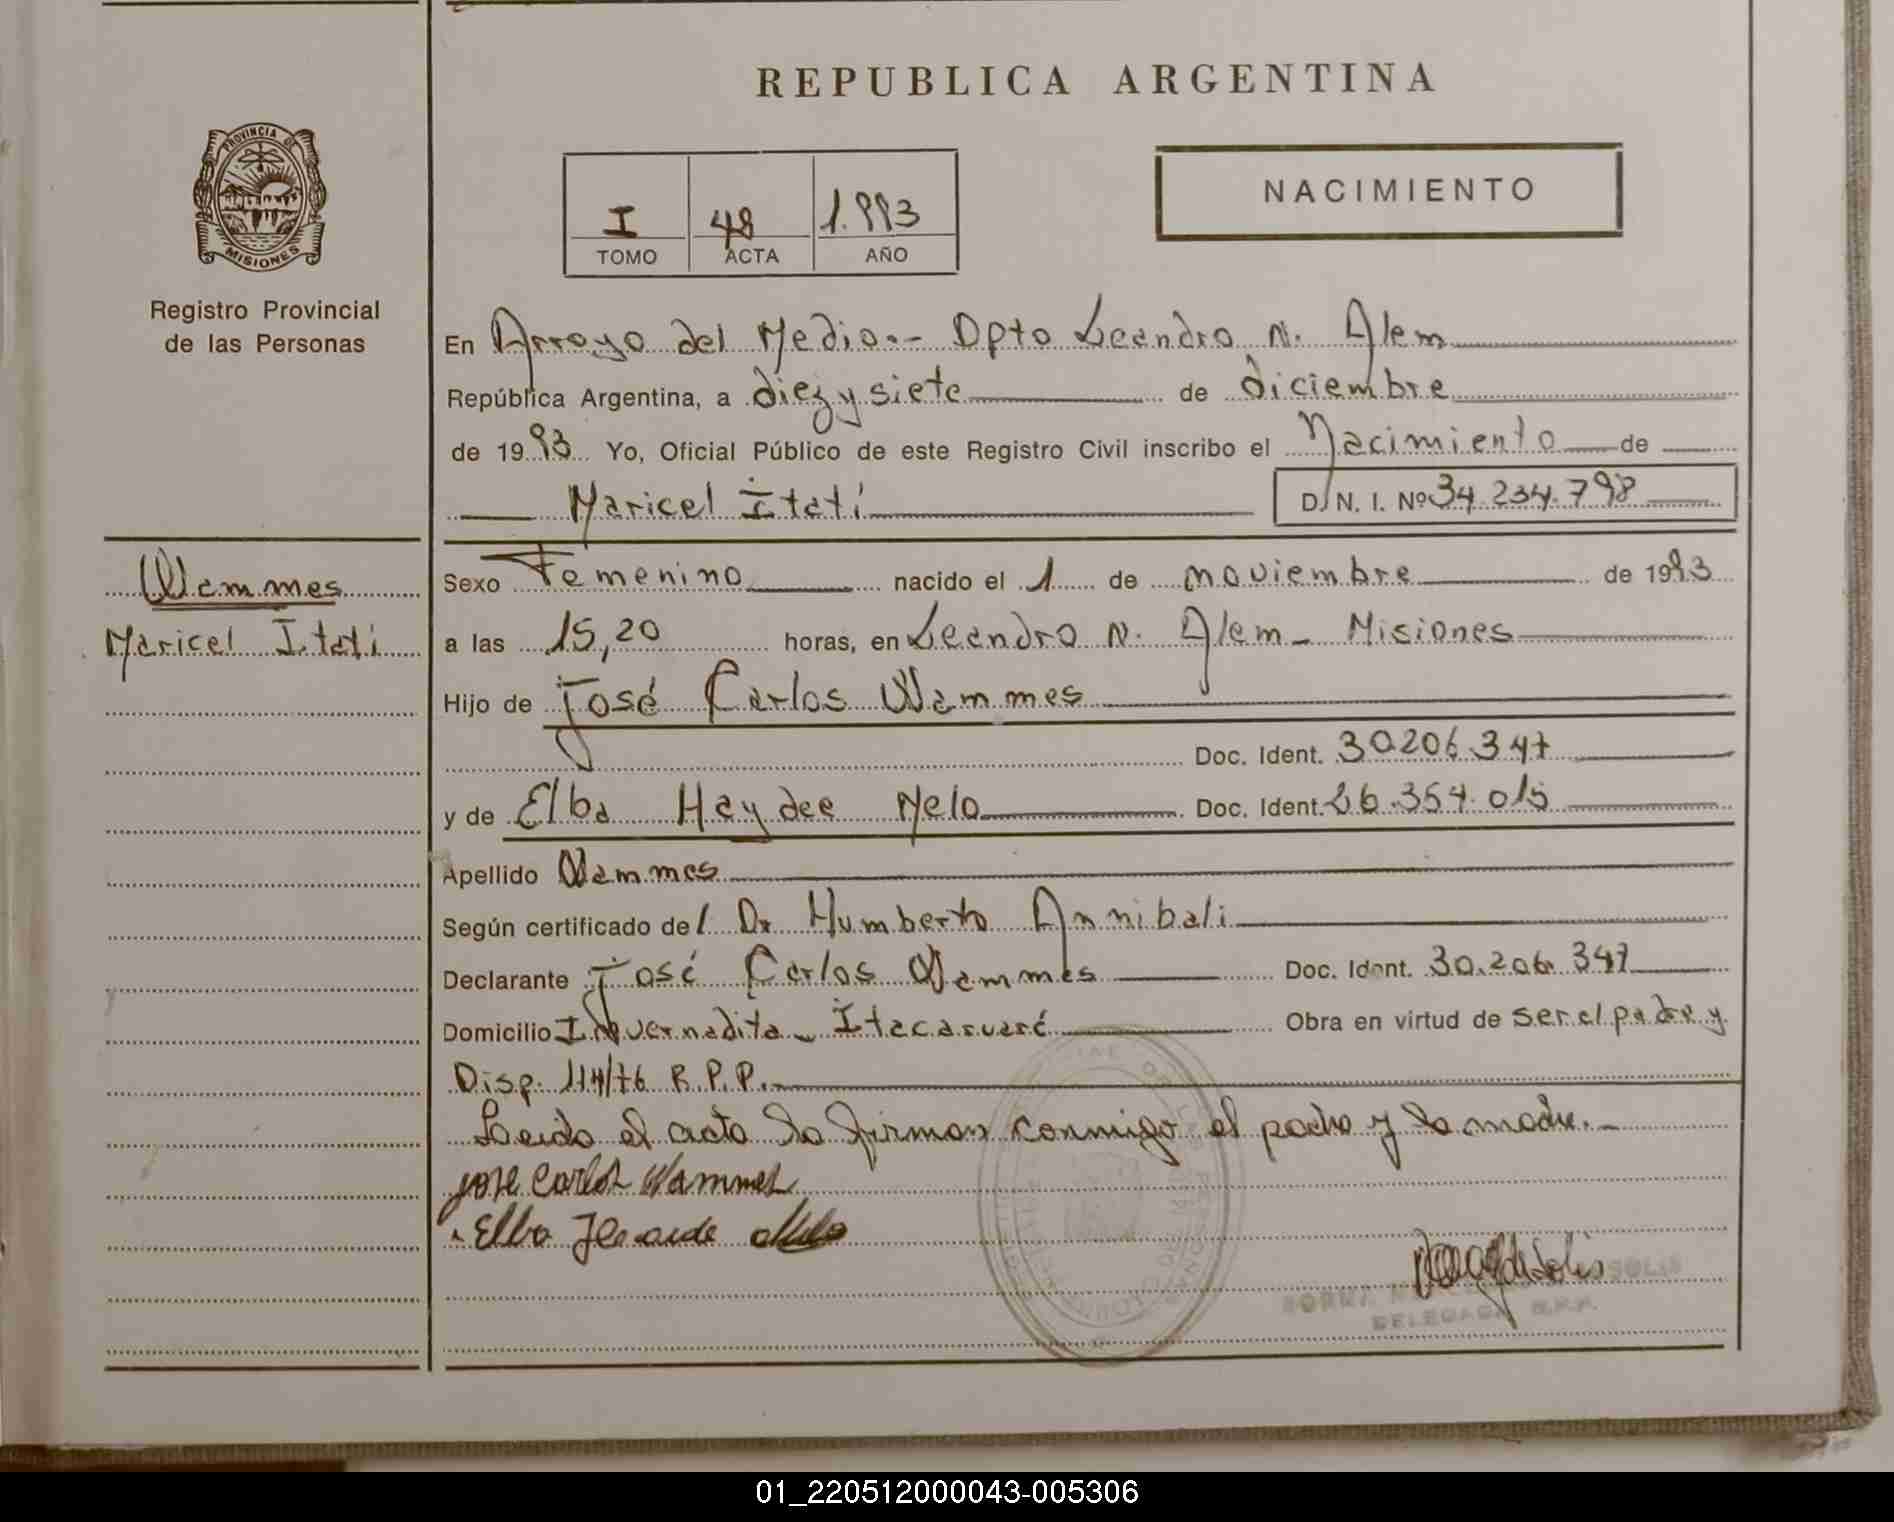 REPUBLICA ARGENTINA
PROVINCIA DE
MISIONES
Registro Provincial
de las Personas
NACIMIENTO
I 48 1.993
TOMO ACTA AÑO
En Arroyo del Medio.- Dpto Leandro N. Alem
República Argentina, a diez y siete de diciembre
de 1993 Yo, Oficial Público de este Registro Civil inscribo el Nacimiento de
Maricel Itatí D.N.I. Nº 34.234.798
Wammes
Maricel Itatí
Sexo Femenino nacido el 1 de noviembre de 1993
a las 15,20 horas, en Leandro N. Alem - Misiones
Hijo de José Carlos Wammes
Doc. Ident. 30.206.347
y de Elba Haydee Melo Doc. Ident. 26.354.015
Apellido Wammes
Según certificado del Dr Humberto Annibali
Declarante José Carlos Wammes Doc. Ident. 30.206.347
Domicilio Invernadita - Itacaruaré Obra en virtud de ser el padre y
Disp. 114/76 R.P.P.
Leida el acta la firman conmigo el padre y la madre.-
jose Carlos Wammes
Elba Melo
SOLIS
NORMA
DELEGADA R.P.P.
01_220512000043-005306